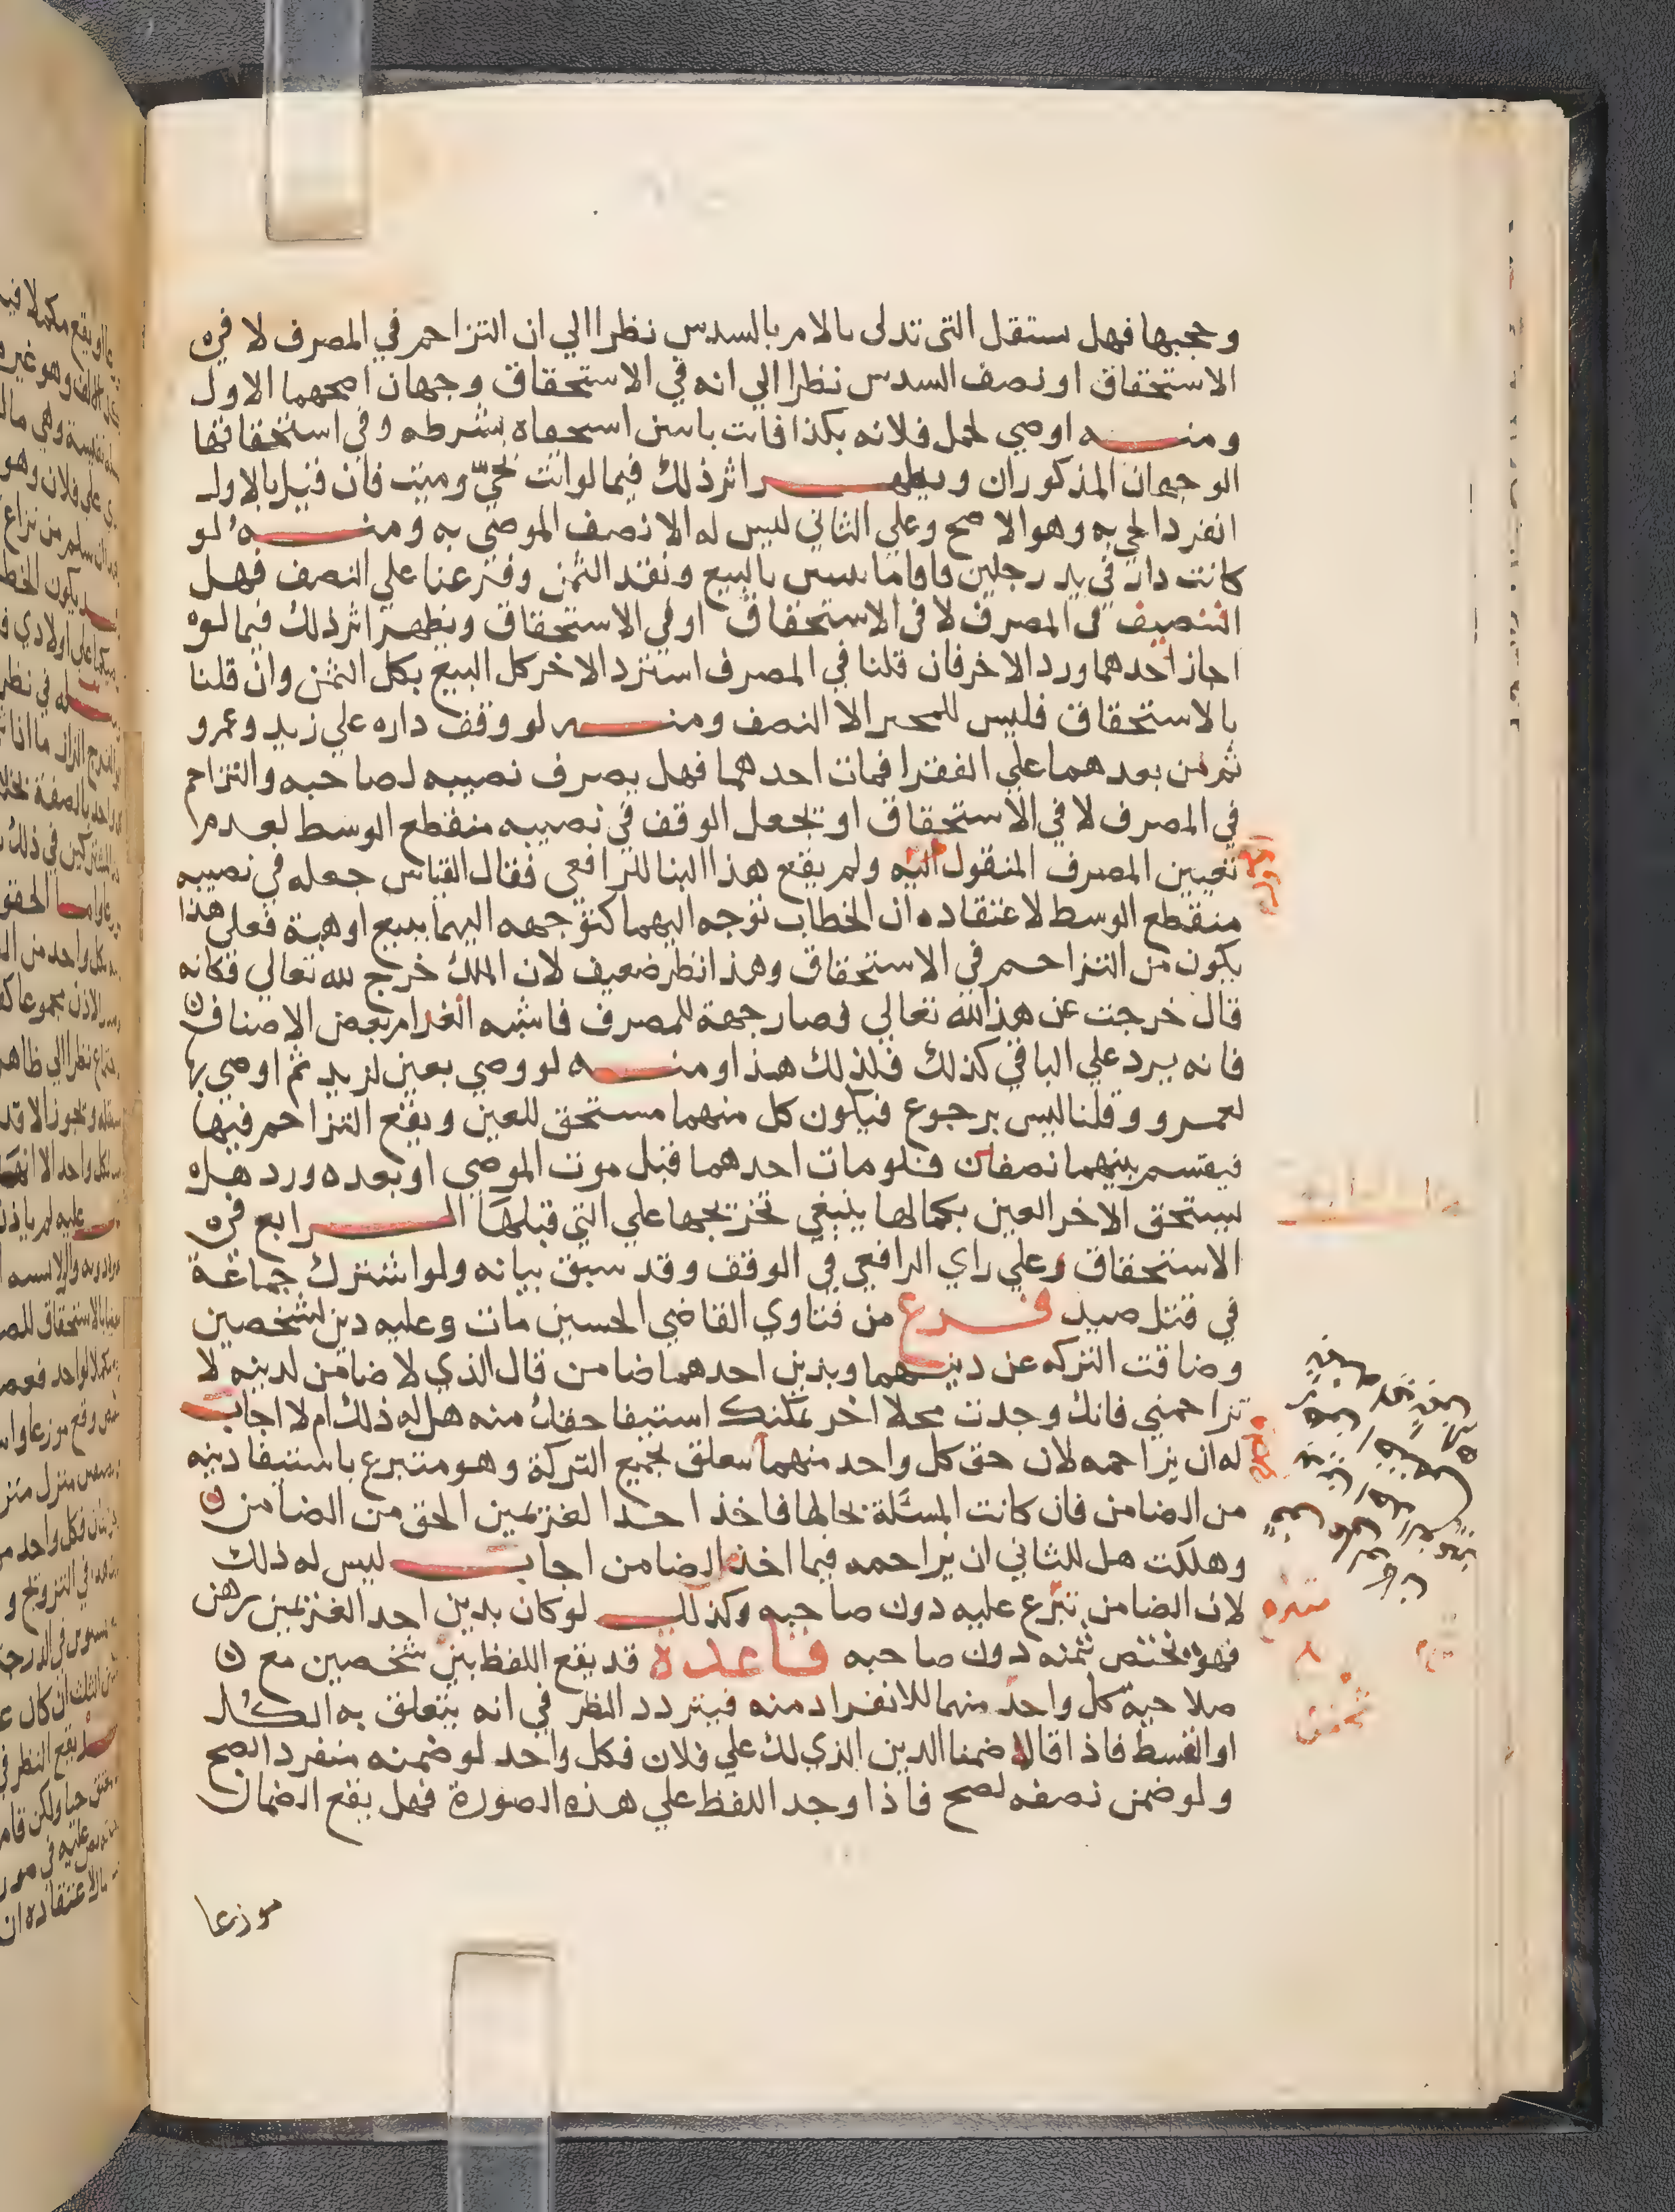 وحجبها فهل ستقل التى تدلى بالام بالسدس نظرا الي ان التزاحم في المصرف لا في
الاستحقاق او نصف السدس نظرا الي انه في الاستحقاق وجهان اصحهما الاول
ومنه اوصي لحمل فلانه بكذا فاتت باثنين استحقاه بشرطه وفي استحقاقها
الوجهان المذكوران ويظهر اثر ذلك فيما لو اتت بحيّ وميت فان قيل بالاول
انفرد الحي به وهو الاصح وعلي الثاني ليس له الا نصف الموصي به ومنه لو
كانت دار في يد رجلين فاقاما بالبيع ونقد الثمن وفرعنا علي النصف فهل
التنصيف في المصرف لا في الاستحقاق او في الاستحقاق ويظهر اثر ذلك فيما لو
اجاز احدهما ورد الاخر فان قلنا في المصرف استرد الاخر كل البيع بكل الثمن وان قلنا
بالاستحقاق فليس للمجيز الا النصف ومنه لو وقف داره علي زيد وعمرو
ثم من بعدهما علي الفقرا فمات احدهما فهل يصرف نصيبه لصاحبه والتزاحم
في المصرف لا في الاستحقاق او يجعل الوقف في نصيبه منقطع الوسط لعدم
تعيين المصرف المنقول اليه ولم يقع هذا البنا للرافعي فقال القياس جعله في نصيبه
منقطع الوسط لاعتقاده ان الخطاب توجه اليهما كتوجهه اليهما ببيع او هبة فعلي هذا
يكون من التزاحم في الاستحقاق وهذا نظر ضعيف لان الملك خرج لله تعالي فكانه
قال خرجت عن هذا لله تعالي فصار جهة للمصرف فاشبه انعدام بعض الاصناف
فانه يرد علي الباقي كذلك فلذلك هذا ومنه لو وصي بعين لزيد ثم اوصي بها
لعمرو وقلنا ليس برجوع فيكون كل منهما مستحق للعين ويقع التزاحم فيها
فيقسم بينهما نصفان فلو مات احدهما قبل موت الموصي او بعده ورد هل
يستحق الاخر العين بكمالها ينبغي تخريجها علي التي قبلها الرابع في
الاستحقاق وعلي راي الرافعي في الوقف وقد سبق بيانه ولو اشترك جماعة
في قتل صيد فرع من فتاوي القاضي الحسين مات وعليه دين لشخصين
وضاقت التركه عن دينهما وبدين احدهما ضامن قال الذي لا ضامن لدينه لا
تزاحمني فانك وجدت محلا اخر يمكنك استيفا حقك منه هل له ذلك ام لا اجاب
له ان يزاحمه لان حق كل واحد منهما تتعلق بجميع التركة وهو متبرع باستيفا دينه
من الضامن فان كانت المسئلة بحالها فاخذ احدا لغريمين الحق من الضامن
وهلكت هل للثاني ان يزاحمه فيما اخذ الضامن اجاب ليس له ذلك
لان الضامن تبرّع عليه دون صاحبه وكذلك لو كان بدين احد الغريمين رهن
فهو يختص بثمنه دون صاحبه قاعدة قد يقع اللفظ بين شخصين مع
صلاحية كل واحد منهما للانفراد منه فيتردد النظر في انه يتعلق به الكل
او القسط فاذا قالا ضمنا الدين الذي لك علي فلان فكل واحد لو ضمنه منفرد الصح
ولو ضمن نصفه لصح فاذا وجد اللفظ علي هذه الصورة فهل يقع الضمان
موزعا